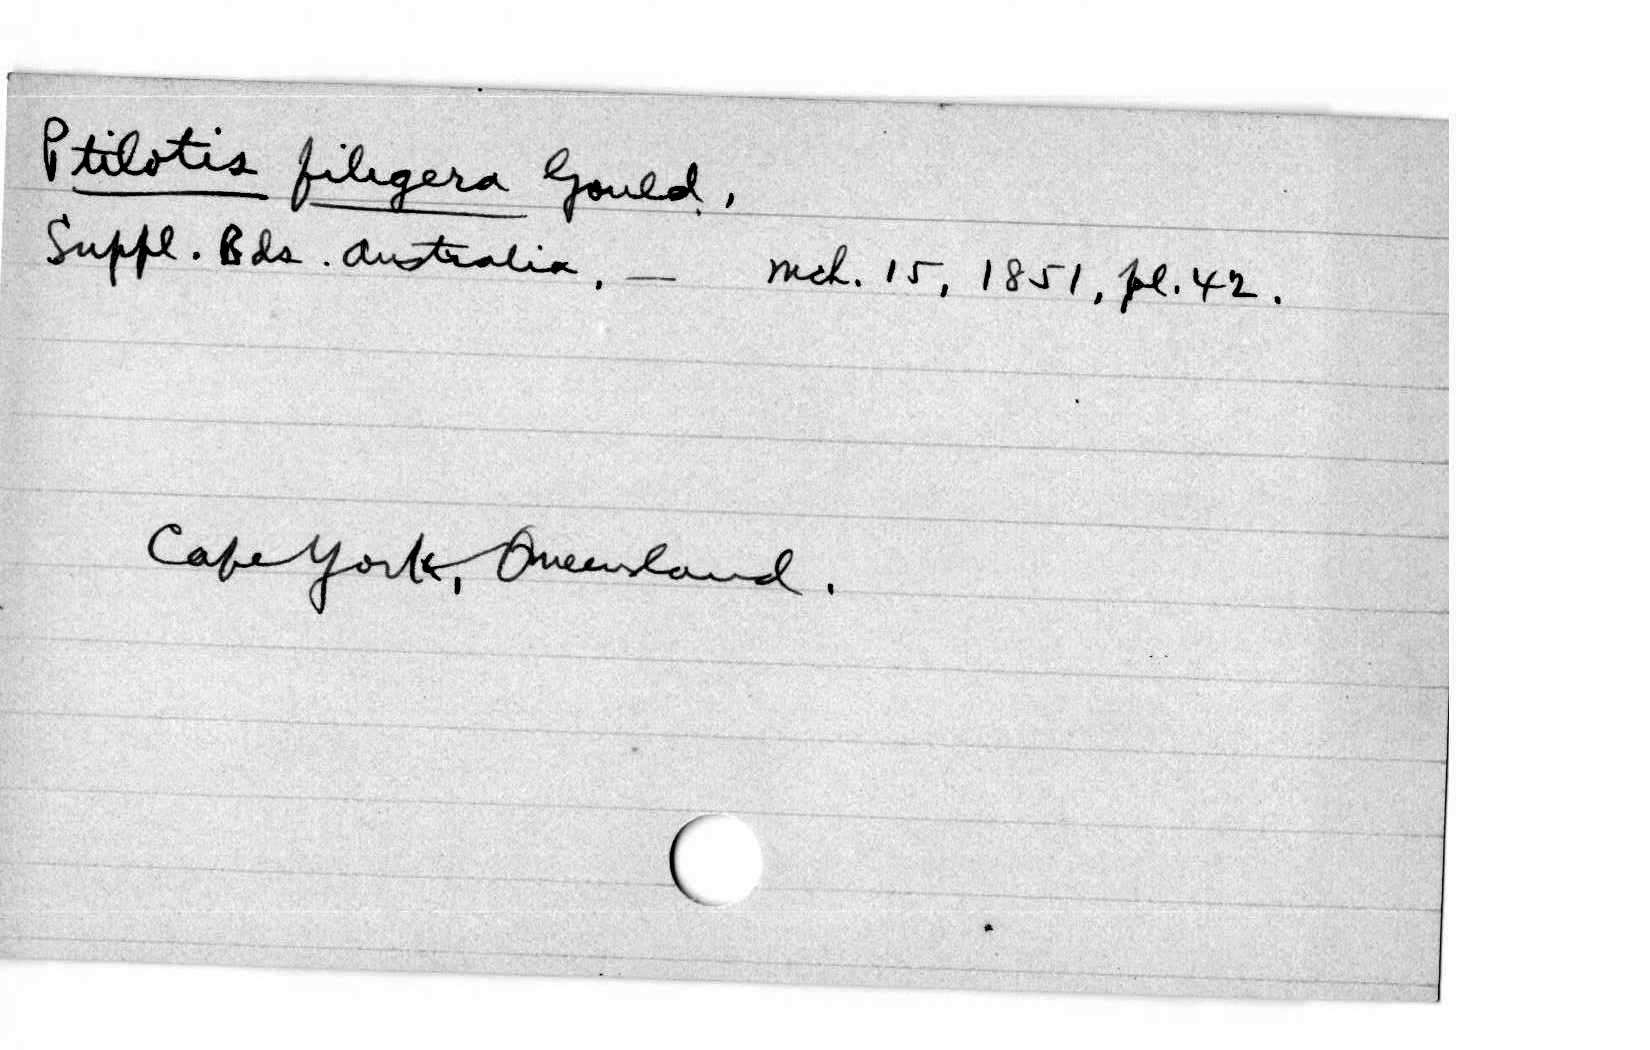 Ptilotis filigera Gould,
Suppl. Bds. Australia, — Mch. 15, 1851, pl. 42.
Cape York, Queensland.